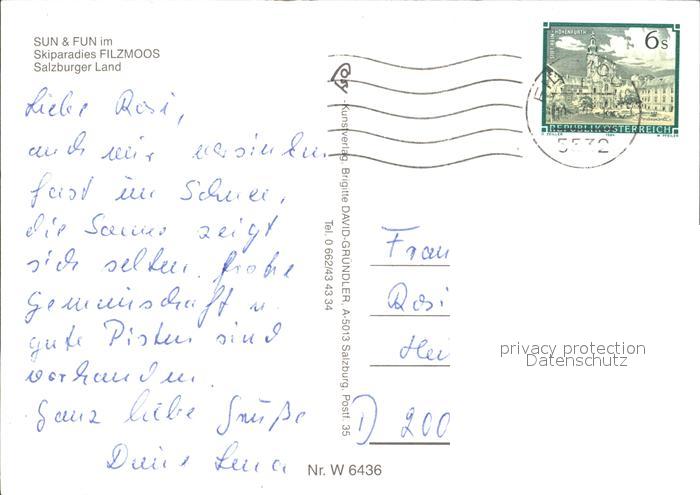 SUN & FUN im
Skiparadies FILZMOOS
Salzburger Land
Liebe Rosi,
auch wir versinken
fast im Schnee,
die Sonne zeigt
sich selten. Frohe
Gemeinschaft u.
gute Pisten sind
vorhanden.
Ganz liebe Grüße
Deine Lena
-Kunstverlag, Brigitte DAVID-GRÜNDLER, A-5013 Salzburg, Postf. 35
Tel. 0 662/43 43 34
Nr. W 6436
STIFT REIN-HOHENFURTH
6s
REPUBLIK ÖSTERREICH
5532
Frau
Rosi
Hei
D 200
privacy protection
Datenschutz